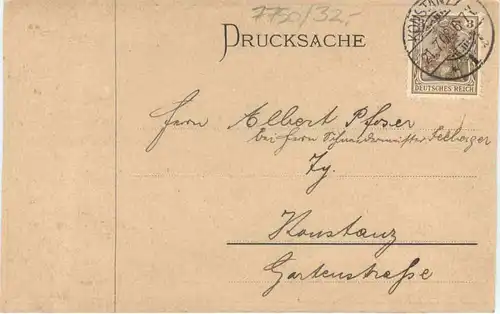 7750/32,-
DRUCKSACHE
KONSTANZ
3
DEUTSCHES REICH
Herrn Albert Pfoser
bei Herrn Schneidermeister
Hy.
Konstanz
Gartenstraße